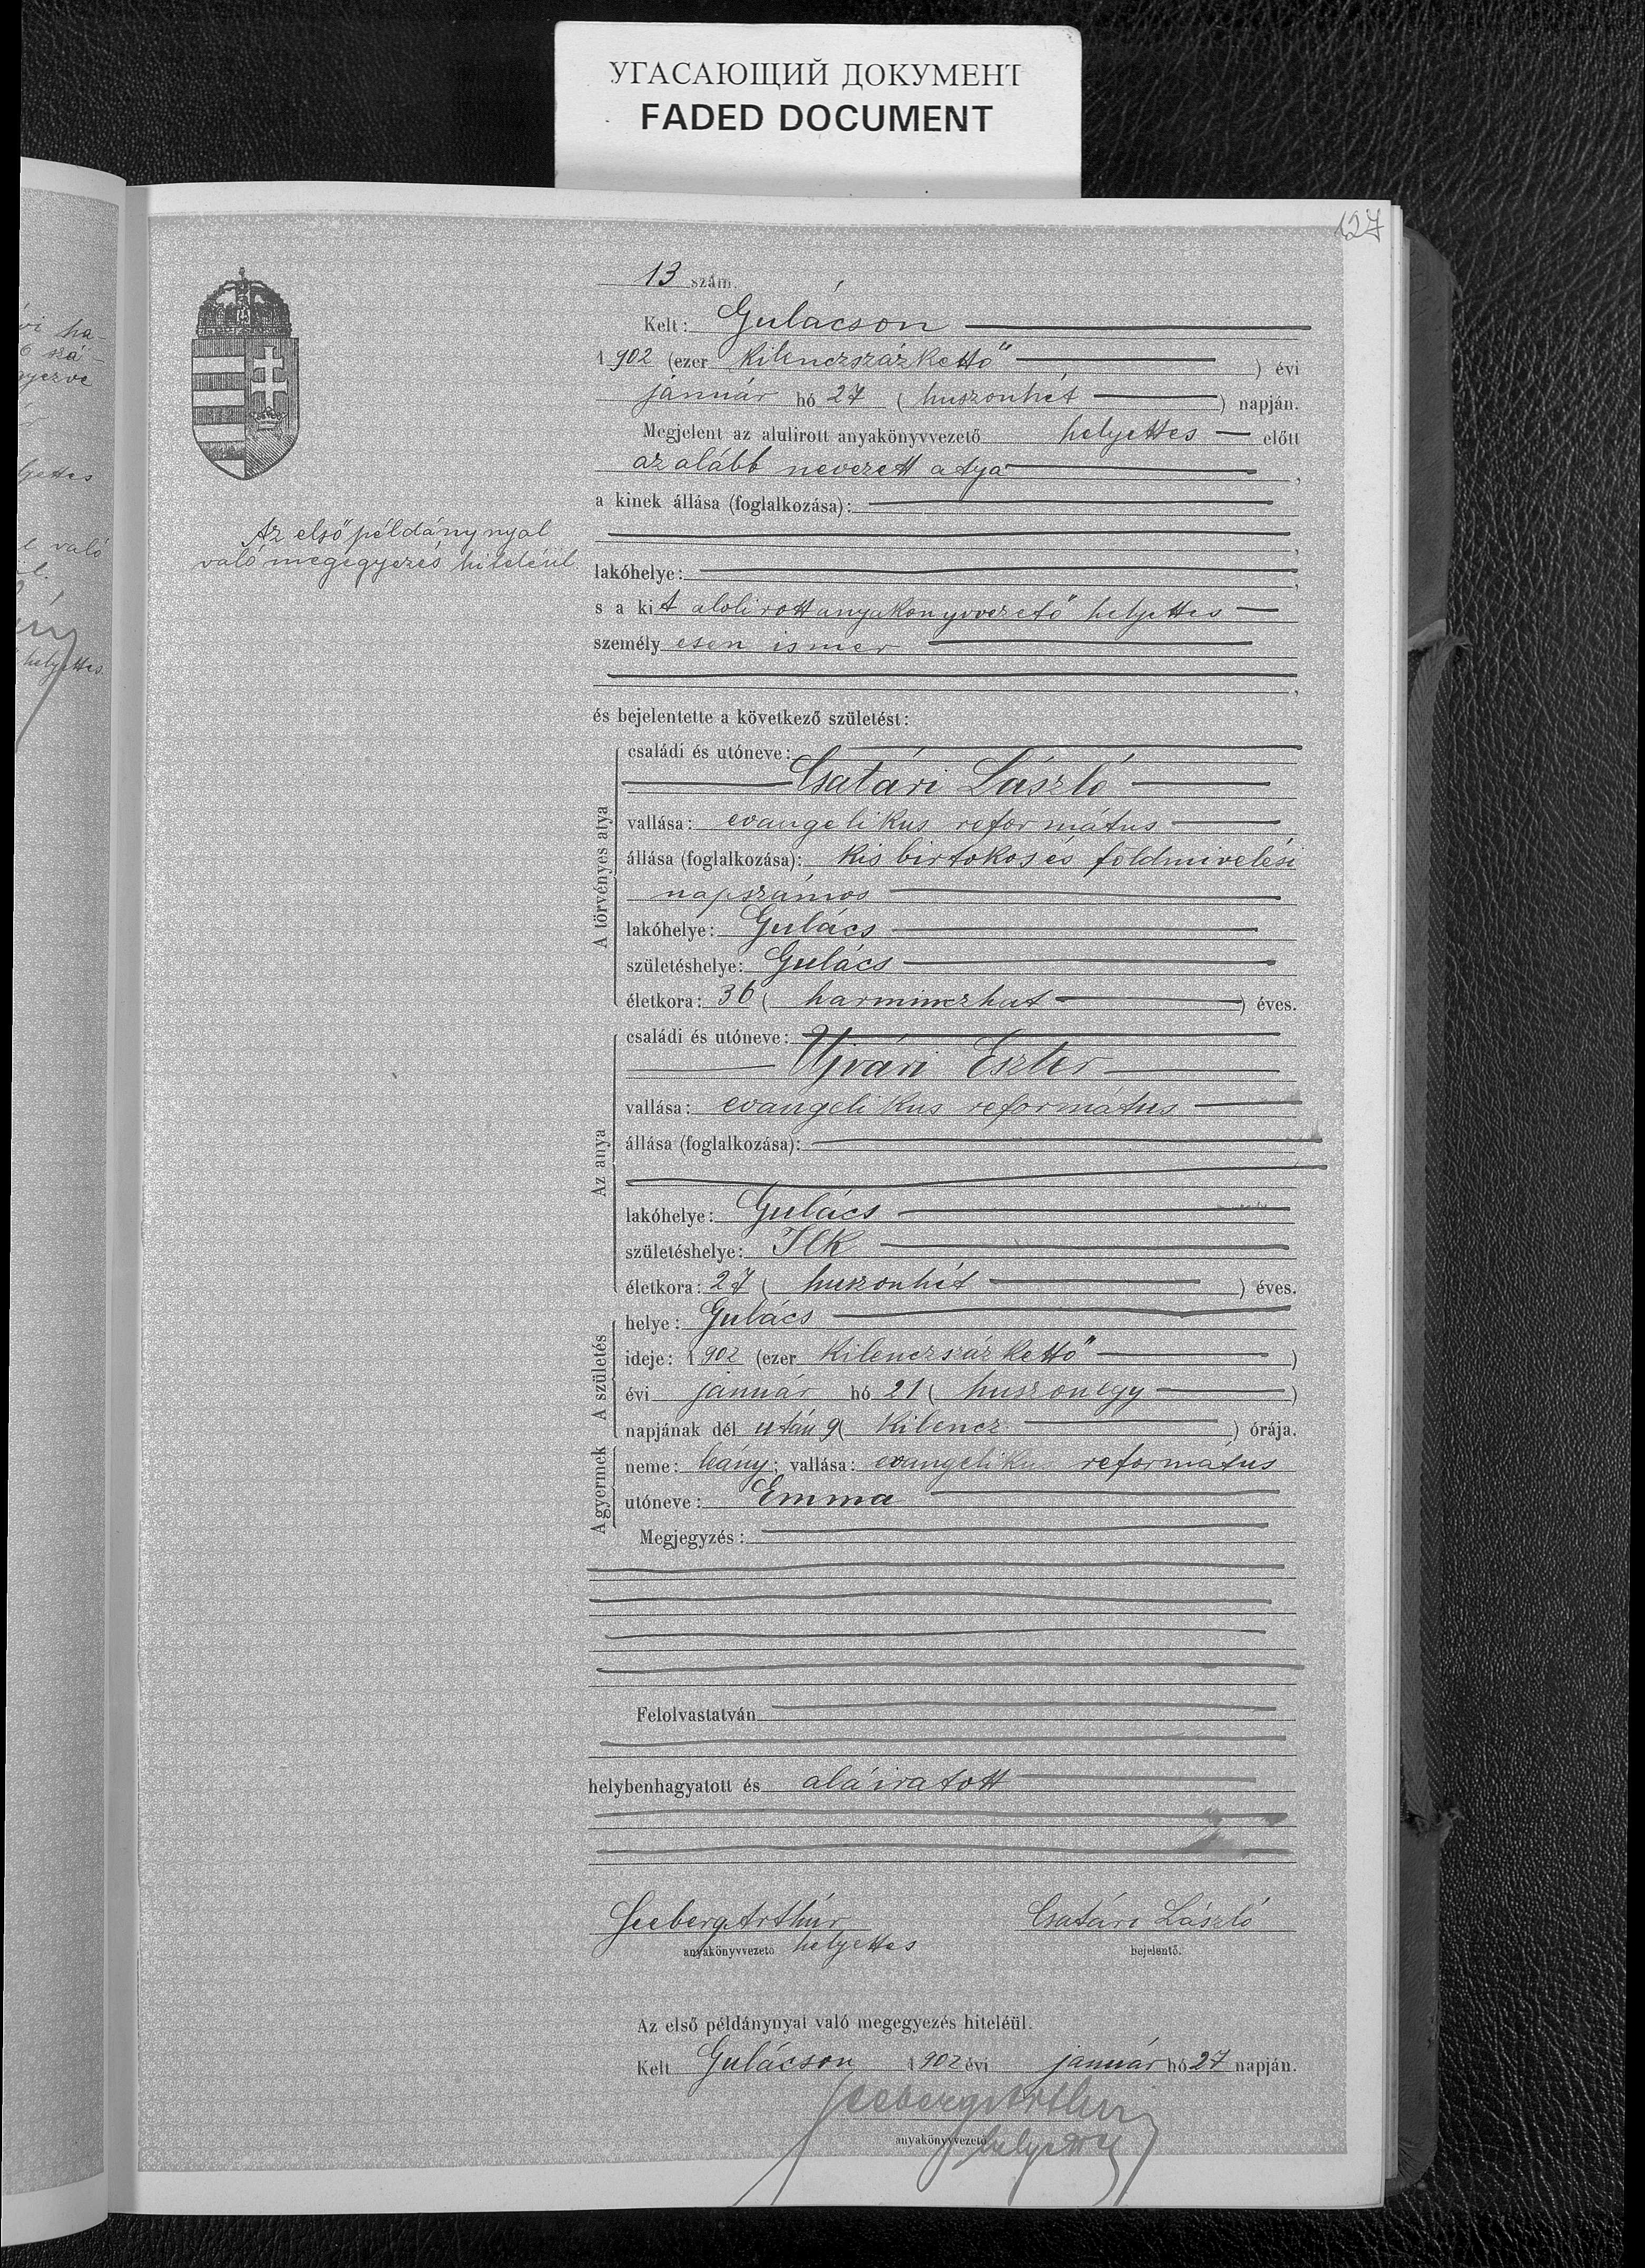 УГАСАЮЩИЙ ДОКУМЕНТ
FADED DOCUMENT
127
13 szám.
Kelt: Gulácson
1902 (ezer kilenczszázkettő) évi
január hó 27 (huszonhét) napján.
Megjelent az alulirott anyakönyvvezető helyettes előtt
az alább nevezett atya,
a kinek állása (foglalkozása):
,
lakóhelye: ,
s a kit alolirott anyakönyvvezető helyettes
személyesen ismer
,
és bejelentette a következő születést:
A törvényes atya
családi és utóneve:
Csatári László
vallása: evangelikus református
állása (foglalkozása): kis birtokos és földmivelési
napszámos
lakóhelye: Gulács
születéshelye: Gulács
életkora: 36 (harminczhat) éves.
Az anya
családi és utóneve:
Ujvári Eszter
vallása: evangelikus református
állása (foglalkozása):
lakóhelye: Gulács
születéshelye: Ilk
életkora: 27 (huszonhét) éves.
A születés
helye: Gulács
ideje: 1902 (ezer kilenczszázkettő)
évi január hó 21 (huszonegy)
napjának dél után 9 (kilencz) órája.
A gyermek
neme: leány; vallása: evangelikus református
utóneve: Emma
Megjegyzés:
Felolvastatván
helybenhagyatott és aláiratott
Seeberg Arthúr
anyakönyvvezető helyettes
Csatári László
bejelentő.
Az első példánynyal való megegyezés hiteléül.
Kelt Gulácson 1902 évi január hó 27 napján.
Seeberg Arthur
anyakönyvvezető helyettes
Az első példánynyal
való megegyezés hiteléül
való
helyettes